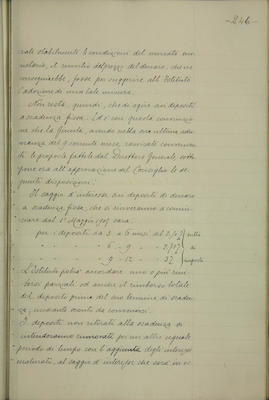 -246-
rate stabilmente le condizioni del mercato mo
netario, il rinvilio del prezzo del denaro, che ne
conseguirebbe, fosse per suggerire all'Istituto
l'adozione di una tale misura.
Non resta, quindi, che di agire sui depositi
a scadenza fissa. Ed è con questa convinzio
ne che la Giunta, avendo nella sua ultima adu
nanza del 9 corrente mese, ravvisate convenien
ti le proposte fattele dal Direttore Generale, sotto
pone ora all'approvazione del Consiglio le se
guenti disposizioni:
Il saggio d'interesse sui depositi di denaro
a scadenza fissa, che si rinnoveranno a comin
ciare dal 1° Maggio 1907 sarà:
per i depositi da 3 a 6 mesi del 2,50% netto
" " 6 " 9 " " 2,75% a
" " 9 " 12 " " 3% 
L'Istituto potrà accordare uno o più rim
borsi parziali od anche il rimborso totale
del deposito prima del suo termine di scaden
za, mediante sconto da convenirsi.
I depositi non ritirati alla scadenza si
intenderanno rinnovati per un altro eguale
periodo di tempo con l'aggiunta degli interessi
maturati, al saggio d'interesse che sarà in vi